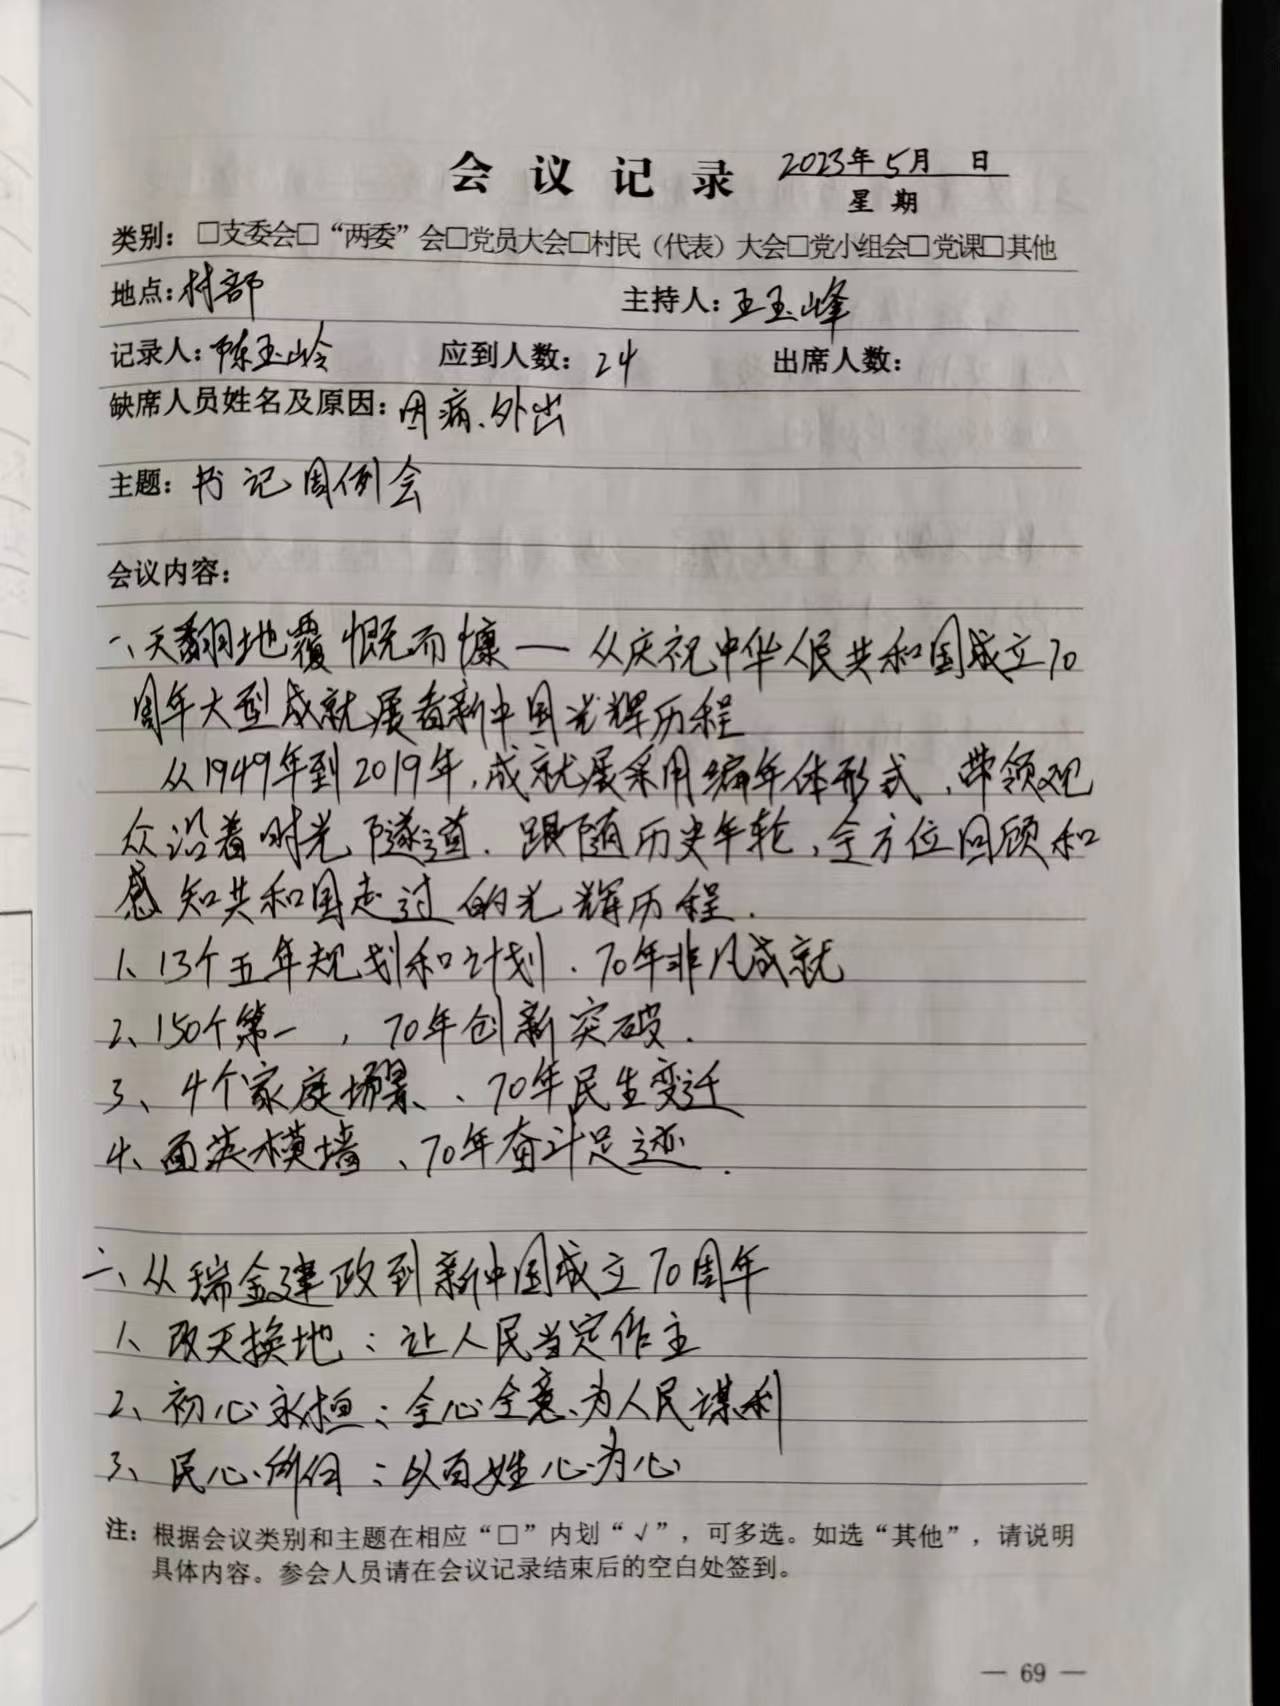 会议记录 2023年5月 日
星期
类别：□支委会□“两委”会□党员大会□村民（代表）大会□党小组会□党课□其他
地点：村部 主持人：王玉峰
记录人：陈玉岭 应到人数：24 出席人数：
缺席人员姓名及原因：因病、外出
主题：书记周例会
会议内容：
一、天翻地覆慨而慷——从庆祝中华人民共和国成立70
周年大型成就展看新中国光辉历程
从1949年到2019年，成就展采用编年体形式，带领观
众沿着时光隧道、跟随历史年轮，全方位回顾和
感知共和国走过的光辉历程.
1、13个五年规划和计划、70年非凡成就
2、150个第一，70年创新突破.
3、4个家庭场景、70年民生变迁
4、面英模墙、70年奋斗足迹.
二、从瑞金建政到新中国成立70周年
1、改天换地：让人民当定作主
2、初心永恒：全心全意为人民谋利
3、民心所向：以百姓心为心
注：根据会议类别和主题在相应“□”内划“√”，可多选。如选“其他”，请说明
具体内容。参会人员请在会议记录结束后的空白处签到。
— 69 —